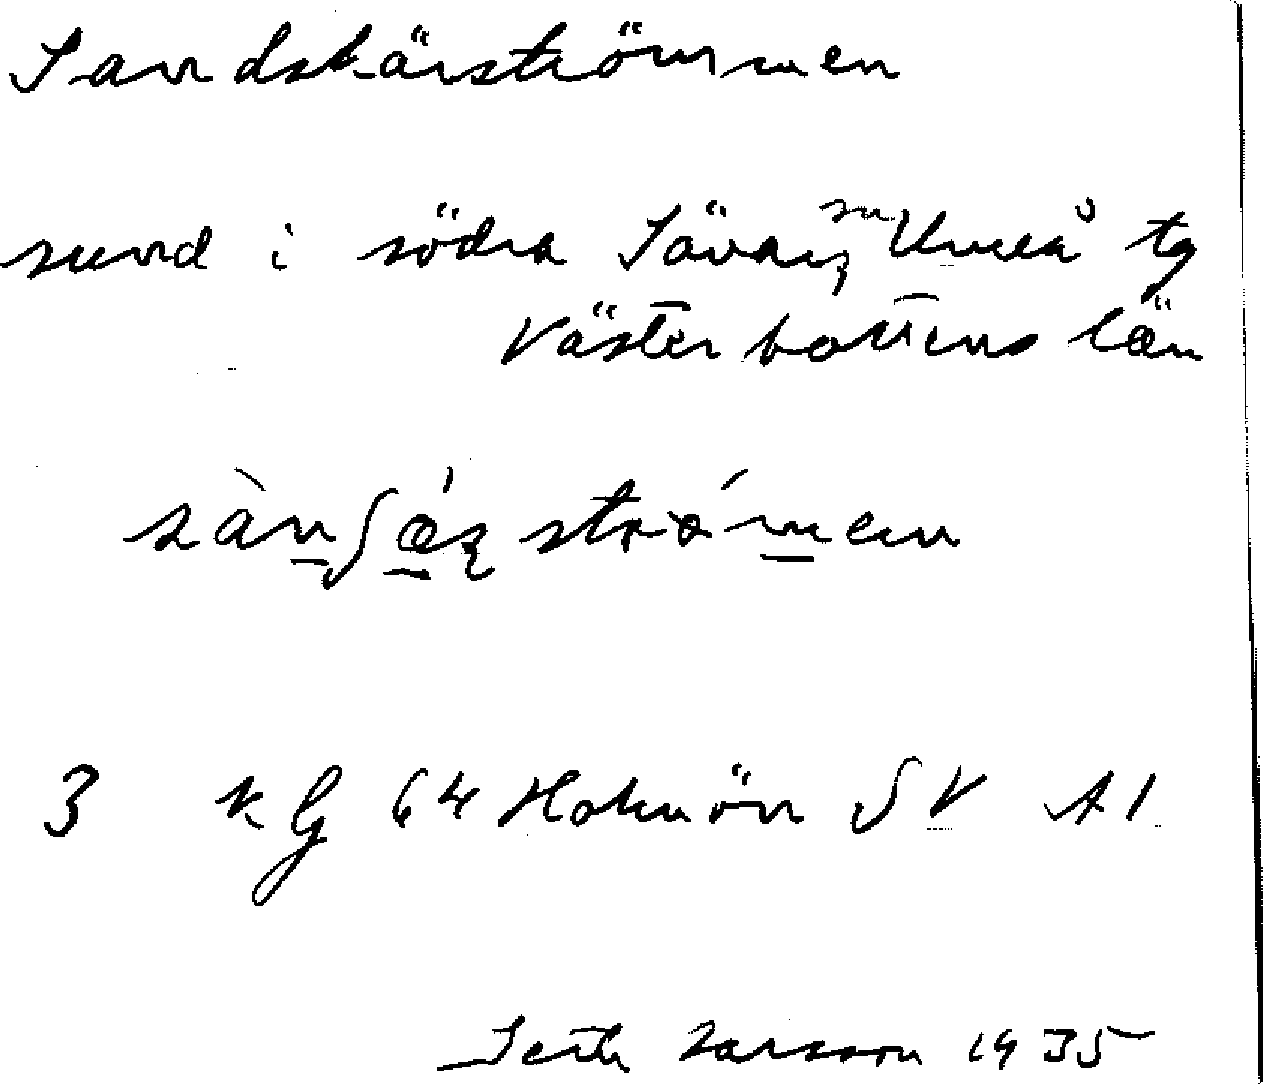 Sandskärströmmen
sund i södra Sävars sn Umeå tg
Västerbottens län
3 kg 64 Holmön SV A1
Seth Larsson 1935